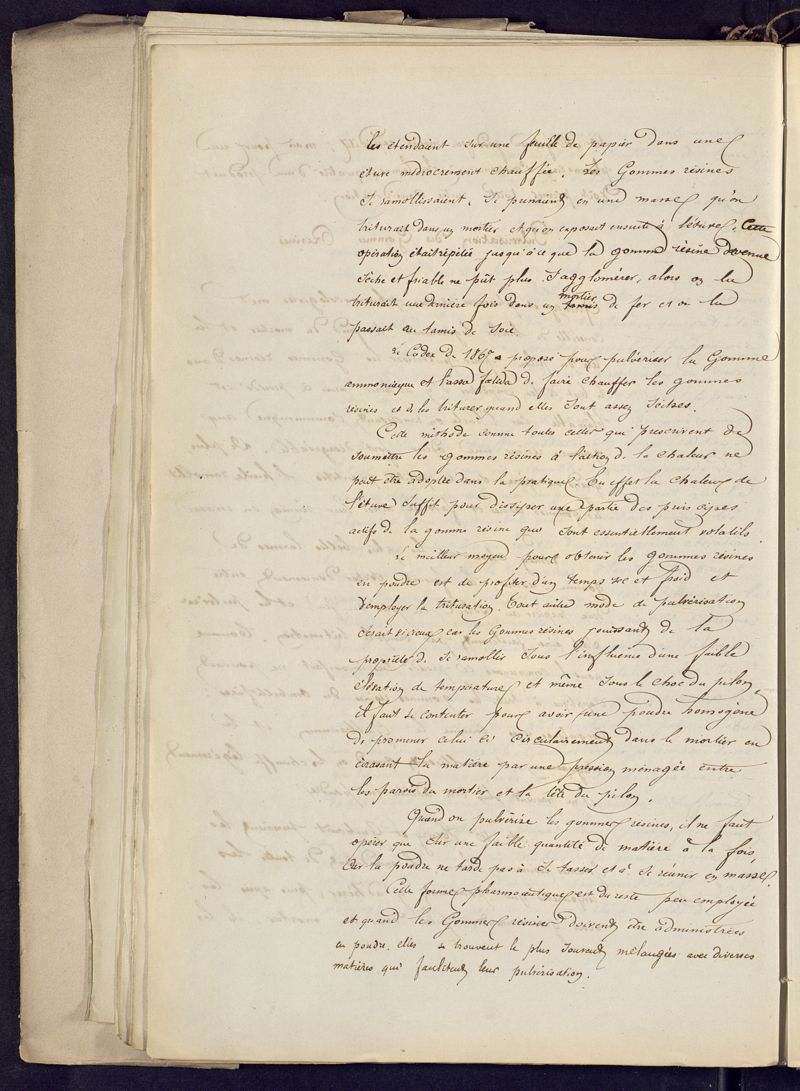 les étendaient sur une feuille de papier dans une
étuve médiocrement chauffée. Les Gommes résines
se ramollissaient, se prenaient en une masse qu'on
triturait dans un mortier et qu'on exposait ensuite à l'étuve. Cette
opération était répétée jusqu'à ce que la gomme résine devenue
sèche et friable ne pût plus s'agglomérer, alors on la
triturait une dernière fois dans un mortier de fer et on la
passait au tamis de soie.
Le Codex de 1867 a proposé pour pulvériser la Gomme
ammoniaque et l'assa foetida de faire chauffer les gommes
résines et de les triturer quand elles sont assez sèches.
Cette méthode comme toutes celles qui prescrivent de
soumettre les gommes résines à l'action de la chaleur ne
peut être adoptée dans la pratique. En effet la chaleur de
l'étuve suffit pour dissiper une partie des principes
actifs de la gomme résine qui sont essentiellement volatils.
Le meilleur moyen pour obtenir les gommes résines
en poudre est de profiter d'un temps sec et froid et
d'employer la trituration. Tout autre mode de pulvérisation
serait vicieux, car les Gommes résines jouissant de la
propriété de se ramollir sous l'influence d'une faible
élévation de température et même sous le choc du pilon,
il faut se contenter pour avoir une poudre homogène
de promener celui ci circulairement dans le mortier en
écrasant la matière par une pression ménagée entre
les parois du mortier et la tête du pilon.
Quand on pulvérise les gommes résines, il ne faut
opérer que sur une faible quantité de matière à la fois,
car la poudre ne tarde pas à se tasser et à se réunir en masse.
Cette forme pharmaceutique est du reste peu employée
et quand les Gommes résines doivent être administrées
en poudre, elles se trouvent le plus souvent mélangées avec diverses
matières qui facilitent leur pulvérisation.